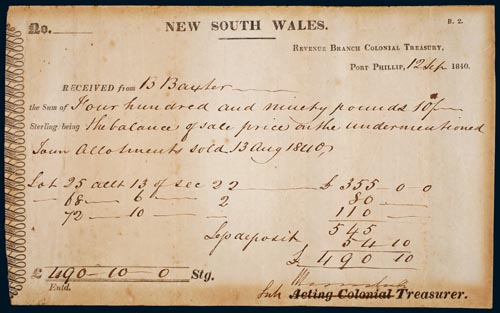 No.
NEW SOUTH WALES.
B. 2.
REVENUE BRANCH COLONIAL TREASURY,
PORT PHILLIP, 12 Sep 1840.
RECEIVED from B Baxter
the Sum of Four hundred and ninety pounds 10/-
Sterling being the balance of sale price on the undermentioned
Town Allotments sold 13 Aug 1840,
Lot 25 allt 13 of sec 22 £ 355 - 0 - 0
- 68 - 6 - 2 80 -
72 - 10 - 110 -
545
Less deposit 54 10
£ 490 10
£ 490 - 10 - 0 Stg.
Entd.
Sub Acting Colonial Treasurer.